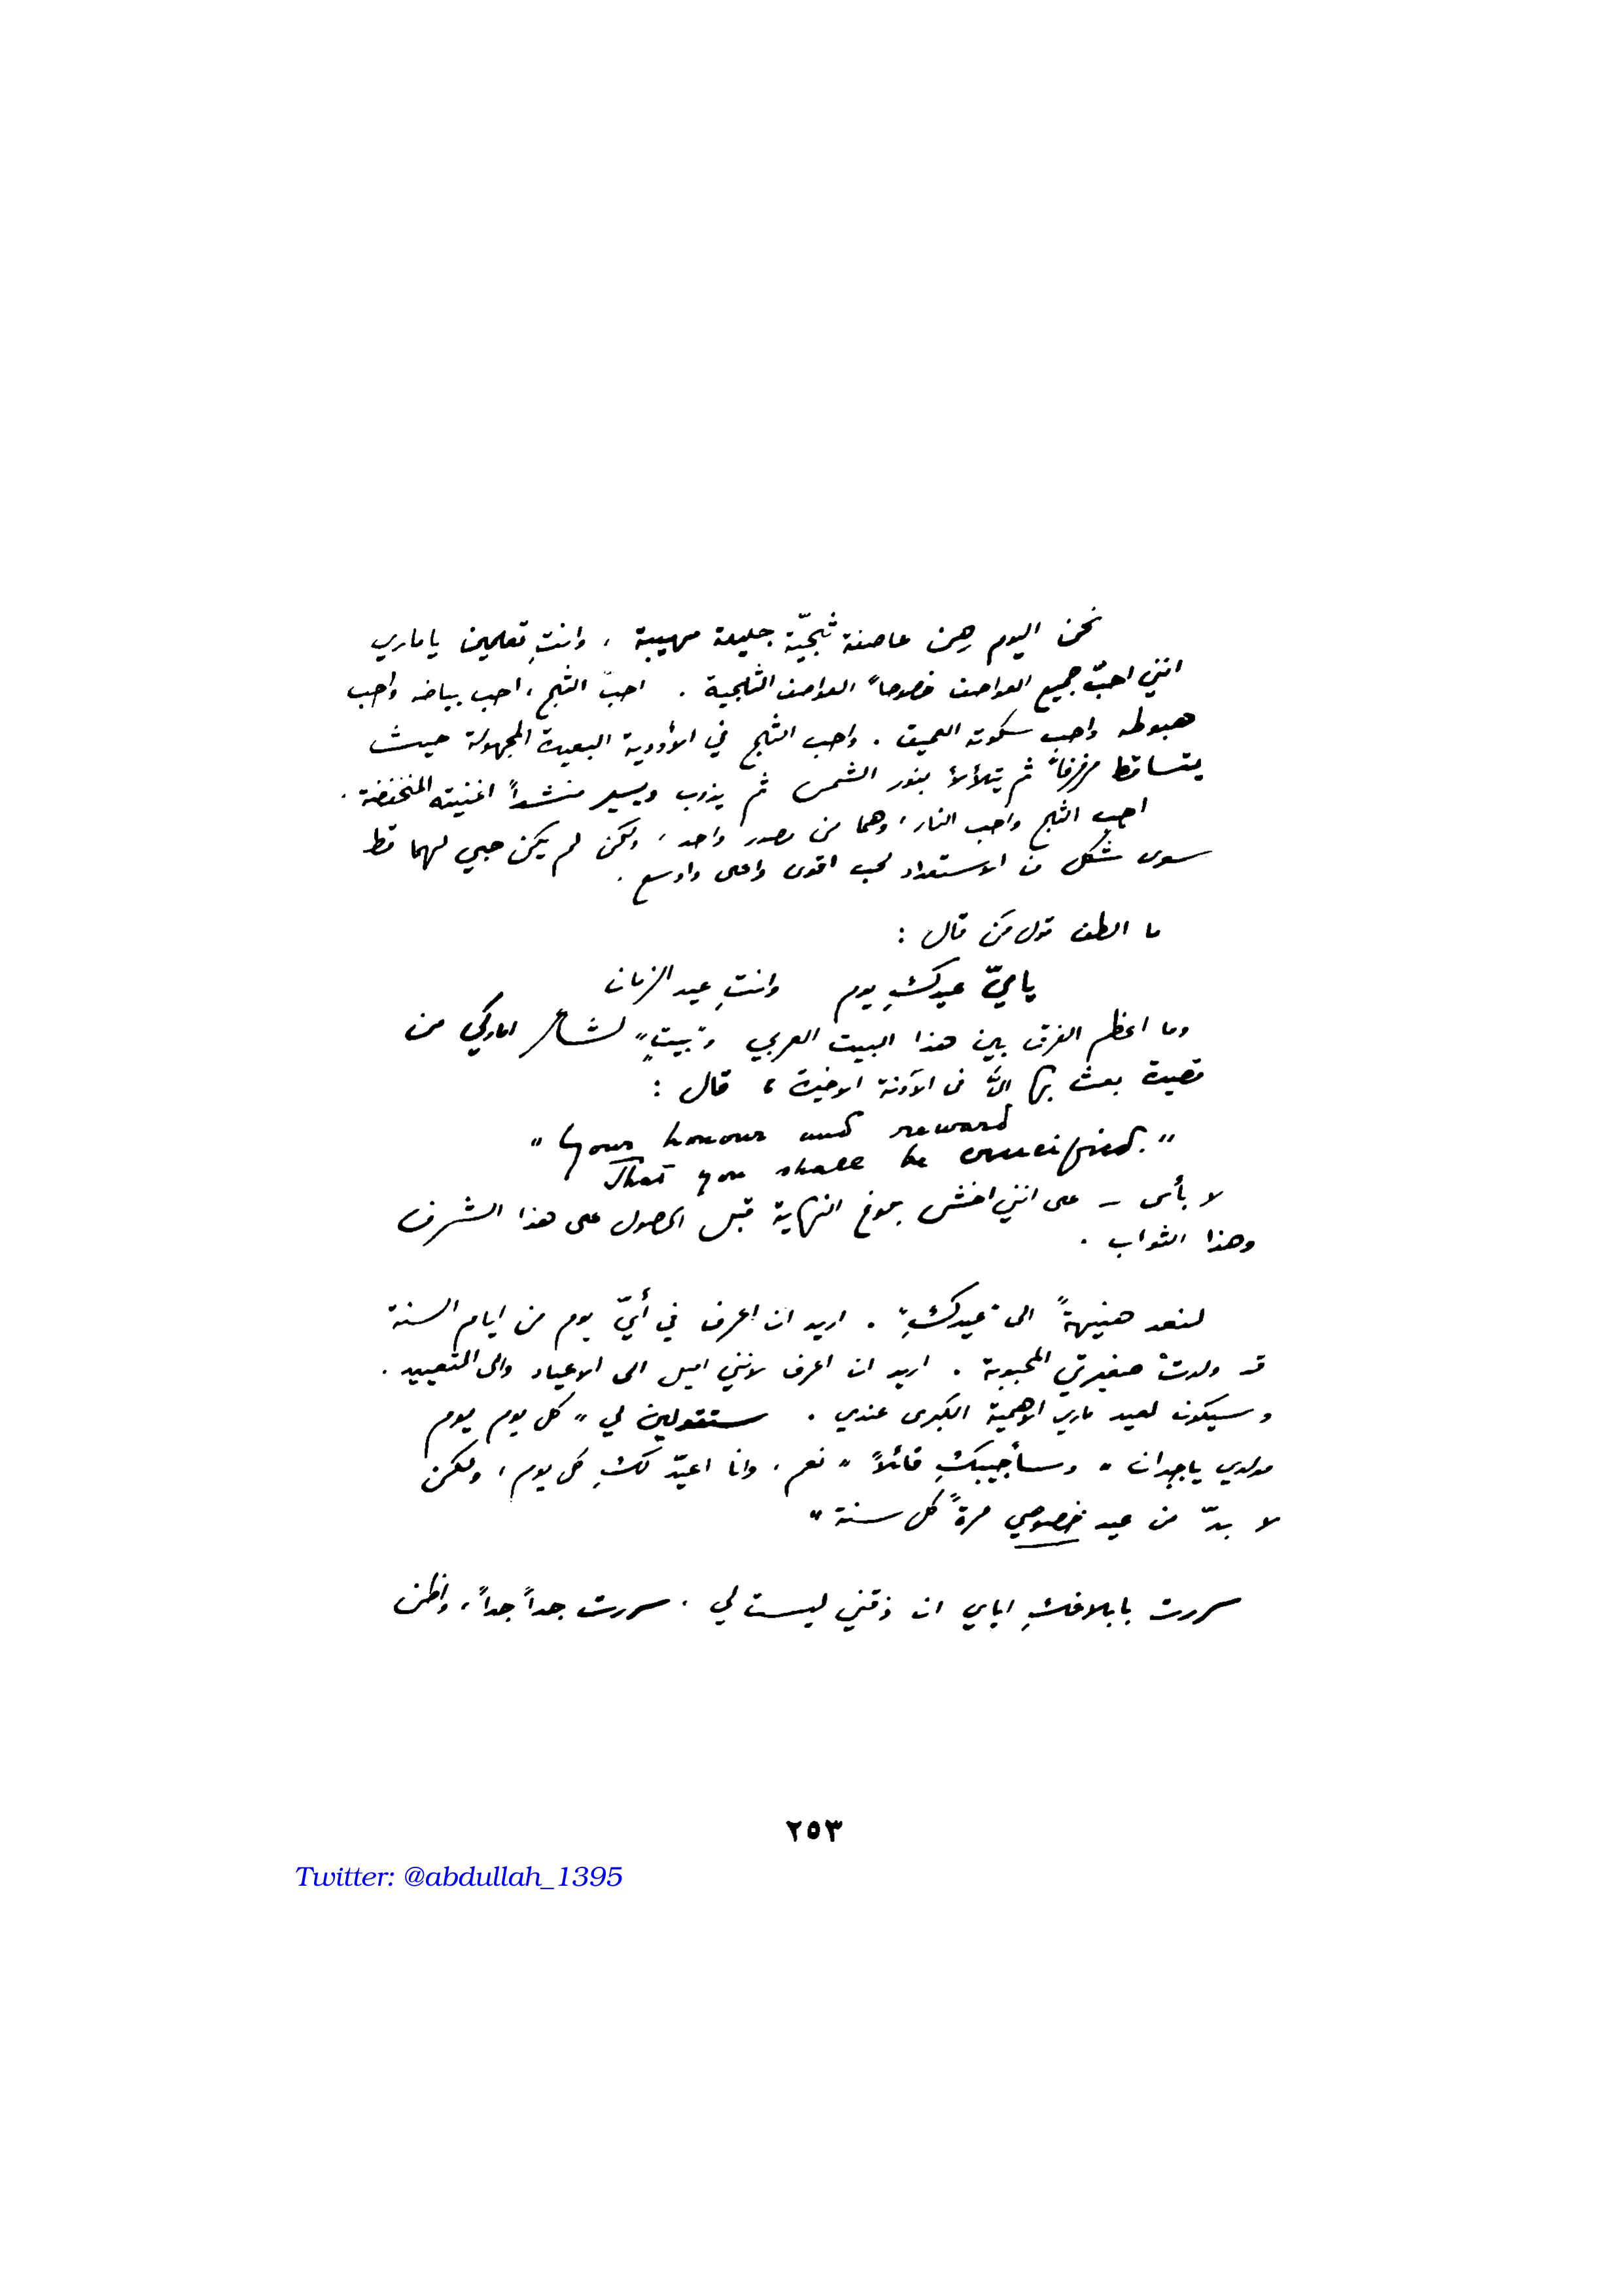 نحن اليوم رهن عاصفة ثلجيّة جليلة مهيبة ، وانتِ تعلمين يا ماري
انني احبّ جميع العواصف خصوصاً العواصف الثلجية . احبّ الثلج ، احب بياضه واحب
هبوطه واحب سكوته العميق . واحب الثلج في الأودية البعيدة المجهولة حيث
يتساقط مرفرفاً ثم يتلألأ بنور الشمس ثم يذوب ويسير منشداً اغنيته المنخفضة .
احب الثلج واحب النار ، وهما من مصدر واحد ، ولكن لم يكن حبي لهما قط
سوى شكل من الاستعداد لحب اقوى واعلى واوسع .
ما الطف قول من قال :
يا ميّ عيدكِ يوم وانتِ عيد الزمان
وما اعظم الفرق بين هذا البيت العربي و "بيتٍ" لشاعر اماركي من
قصيدة بعث بها اليّ في الآونة الاخيرة ، قال :
" Your honour and reward
That you shall be crucified. "
لا بأس – على انني اخشى بلوغ النهاية قبل الحصول على هذا الشرف
وهذا الثواب .
لنعد هنيهةً الى "عيدكِ" . اريد ان اعرف في أيّ يوم من ايام السنة
قد ولدتْ صغيرتي المحبوبة . اريد ان اعرف لانني اميل الى الاعياد والى التعييد .
وسيكون لعيد ماري الاهمية الكبرى عندي . ستقولين لي " كل يوم يوم
مولدي يا جبران " وسأجيبكِ قائلاً " نعم ، وانا اعيّد لكِ كل يوم ، ولكن
لا بدّ من عيد خصوصي مرةً كل سنة "
سررت بابلاغكِ اياي ان ذقني ليست لي . سررت جداً جداً ، واظن
٢٥٣
Twitter: @abdullah_1395